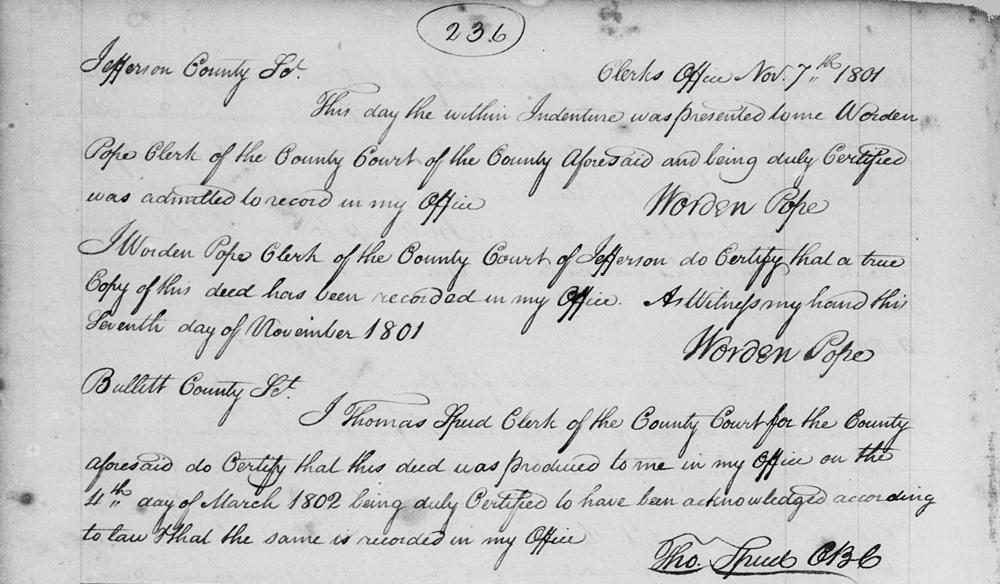 236
Jefferson County Sct. Clerks Office Nov. 7th 1801
This day the within Indenture was presented to me Worden
Pope Clerk of the County Court of the County Aforesaid and being duly Certified
was admitted to record in my Office Worden Pope
I Worden Pope Clerk of the County Court of Jefferson do Certify that a true
Copy of this deed has been recorded in my Office. As Witness my hand this
Seventh day of November 1801
Worden Pope
Bullitt County Sct.
I Thomas Speed Clerk of the County Court for the County
aforesaid do Certify that this deed was produced to me in my Office on the
4th day of March 1802 being duly Certified to have been acknowledged according
to law & that the same is recorded in my Office
Tho. Speed CBC